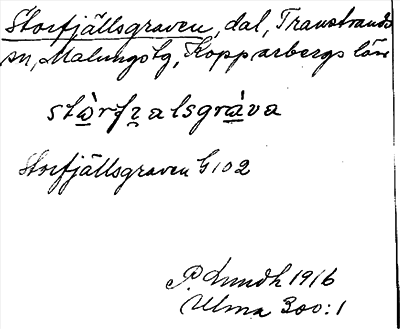 Storfjällsgraven, dal, Transtrands
sn, Malungs tg, Kopparbergs län
stὼrfzalsgrάva
Storfjällsgraven G 102
P. Lundh 1916
Ulma 300:1